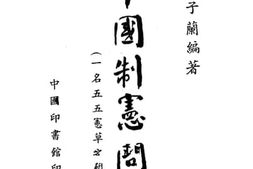 子蘭編著
中國制憲問
(一名五五憲草
中國印書館印